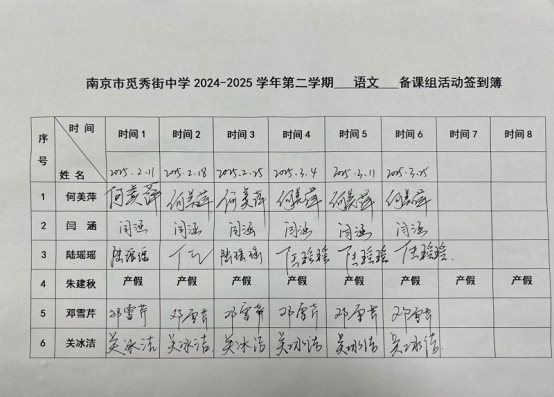 南京市觅秀街中学 2024-2025 学年第二学期 语文 备课组活动签到簿
序号 时间 姓名 时间 1 时间 2 时间 3 时间 4 时间 5 时间 6 时间 7 时间 8
2025.2.11 2025.2.18 2025.2.25 2025.3.4 2025.3.11 2025.3.25
1 何美萍 何美萍 何美萍 何美萍 何美萍 何美萍 何美萍
2 闫涵 闫涵 闫涵 闫涵 闫涵 闫涵 闫涵
3 陆瑶瑶 陆瑶瑶 陆瑶瑶 陆瑶瑶 陆瑶瑶 陆瑶瑶
4 朱建秋 产假 产假 产假 产假 产假 产假 产假 产假
5 邓雪芹 邓雪芹 邓雪芹 邓雪芹 邓雪芹 邓雪芹 邓雪芹
6 关冰洁 关冰洁 关冰洁 关冰洁 关冰洁 关冰洁 关冰洁